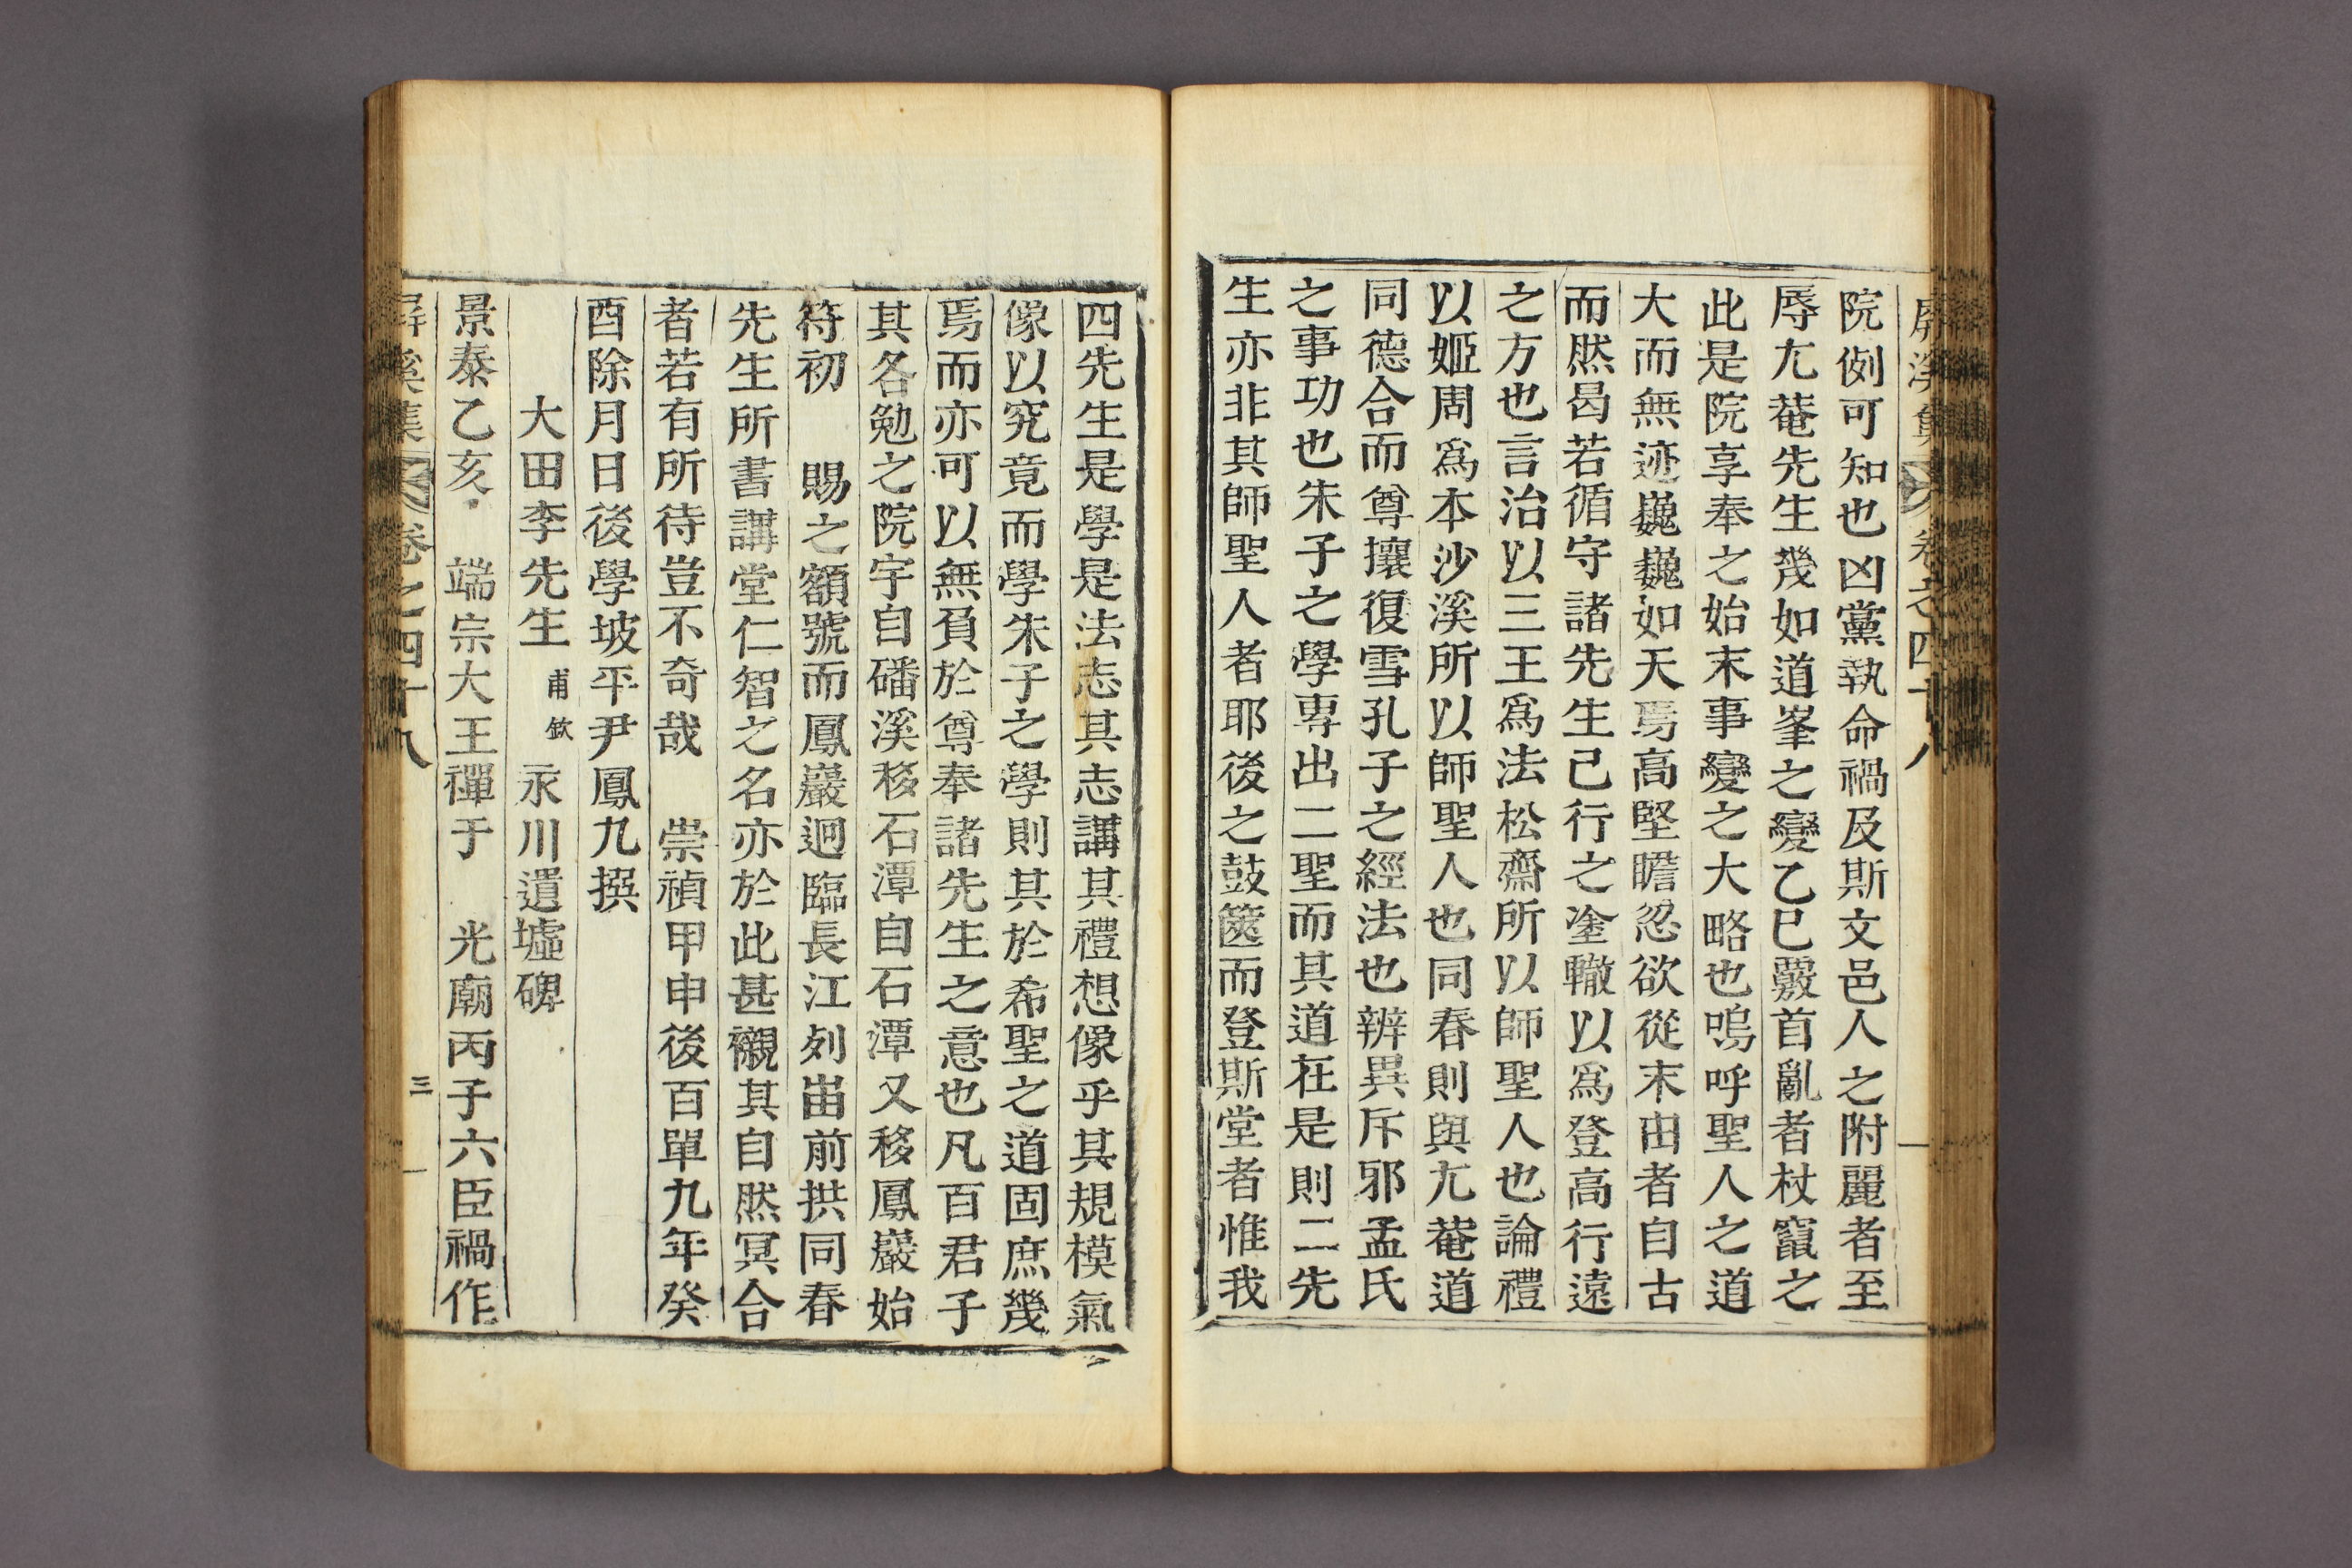 屛溪集 卷之四十八
院例可知也凶黨執命禍及斯文邑人之附麗者至
辱尤菴先生幾如道峯之變乙巳覈首亂者杖竄之
此是院享奉之始末事變之大略也嗚呼聖人之道
大而無迹巍巍如天焉高堅瞻忽欲從末由者自古
而然曷若循守諸先生己行之塗轍以爲登高行遠
之方也言治以三王爲法松齋所以師聖人也論禮
以姬周爲本沙溪所以師聖人也同春則與尤菴道
同德合而尊攘復雪孔子之經法也辨異斥邪孟氏
之事功也朱子之學專出二聖而其道在是則二先
生亦非其師聖人者耶後之鼓篋而登斯堂者惟我
四先生是學是法志其志講其禮想像乎其規模氣
像以究竟而學朱子之學則其於希聖之道固庶幾
焉而亦可以無負於尊奉諸先生之意也凡百君子
其各勉之院宇自磻溪移石潭自石潭又移鳳巖始
符初 賜之額號而鳳巖迥臨長江列峀前拱同春
先生所書講堂仁智之名亦於此甚襯其自然冥合
者若有所待豈不奇哉 崇禎甲申後百單九年癸
酉除月日後學坡平尹鳳九撰
大田李先生甫欽永川遺墟碑
景泰乙亥 端宗大王禪于 光廟丙子六臣禍作
屛溪集 卷之四十八 三